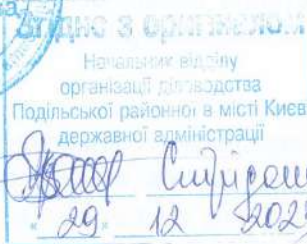 Згідно з оригіналом
Начальник відділу
організації діловодства
Подільської районної в місті Києві
державної адміністрації
"29" 12 202